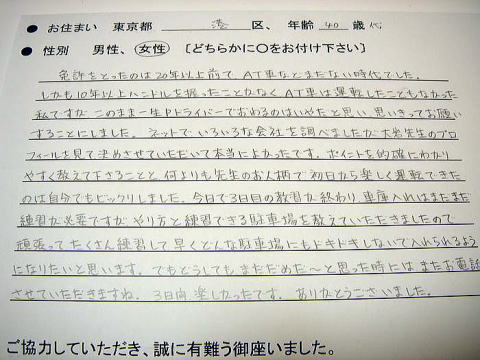 ● お住まい 東京都 港 区、 年齢 40 歳代
● 性別 男性、 女性 〔どちらかに〇をお付け下さい〕
免許をとったのは20年以上前で、AT車などまだない時代でした。
しかも10年以上ハンドルを握ったことがなく AT車は運転したこともなかった
私ですが、このまま一生Pドライバーでおわるのはいやだと思い 思いきってお願い
することにしました。 ネットで いろいろな会社を調べましたが 大岩先生のプロ
フィールを見て 決めさせていただいて本当によかったです。 ポイントを的確にわかり
やすく教えて下さることと 何よりも先生のお人柄で 初日から楽しく運転できた
のは自分でもビックリしました。 今日で3日目の教習が終わり 車庫入れはまだまだ
練習が必要ですが やり方と練習できる駐車場を教えていただきましたので
頑張って たくさん練習して 早くどんな駐車場にもドキドキしないで入れられるよう
になりたいと思います。 でもどうしても まだだめだ〜と思った時には またお電話
させていただきますね。 3日間 楽しかったです。 ありがとうございました。
ご協力していただき、誠に有難う御座いました。